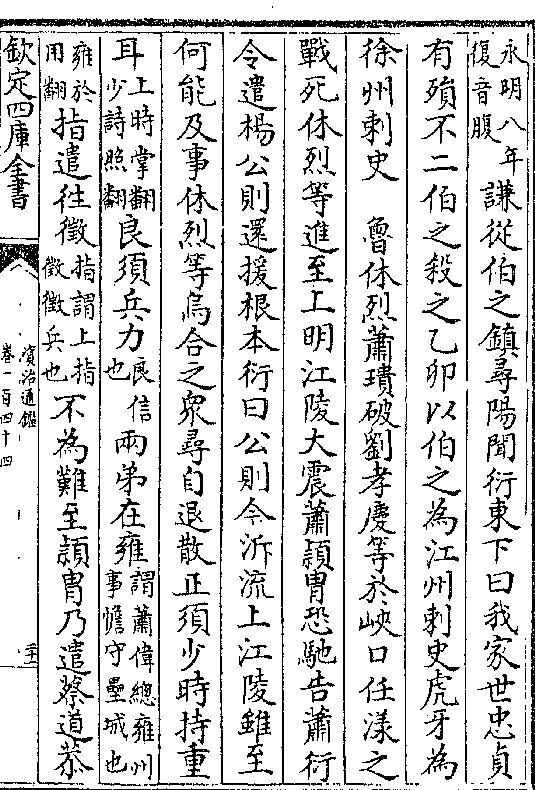 永明八年
復音腹
謙從伯之鎮尋陽聞衍東下曰我家世忠貞
有殞不二伯之殺之乙卯以伯之為江州刺史虎牙為
徐州刺史　魯休烈蕭璝破劉孝慶等於峽口任漾之
戰死休烈等進至上明江陵大震蕭頴胄恐馳告蕭衍
令遣楊公則還援根本衍曰公則今泝流上江陵雖至
何能及事休烈等烏合之衆尋自退散正須少時持重
耳
上時掌翻
少詩照翻
良須兵力
良信
也
兩弟在雍
謂蕭偉總雍州
事憺守壘城也
雍於
用翻
指遣往徵
指謂上指
徵徵兵也
不為難至頴胄乃遣蔡道恭
欽定四庫全書
資治通鑑
卷一百四十四